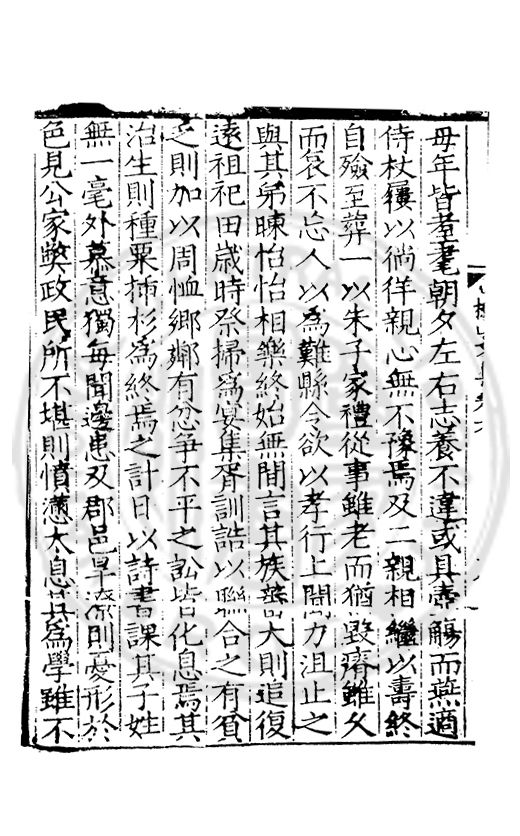 母年皆耆耄朝夕左右志養不違或具壺觴而燕適
侍杖屨以徜徉親心無不豫焉及二親相繼以壽終
自殮至葬一以朱子家禮從事雖老而猶毀瘠雖久
而哀不忘人以為難縣令欲以孝行上聞力沮止之
與其弟暕怡怡相樂終始無間言其族蕃大則追復
遠祖祀田歲時祭掃為宴集胥訓誥以聯合之有貧
乏則加以周恤鄉鄰有忿爭不平之訟皆化息焉其
治生則種粟揷杉為終焉之計日以詩書課其子姓
無一毫外慕意獨每聞邊患及郡邑旱潦則憂形於
色見公家獘政民所不堪則憤懣太息其為學雖不